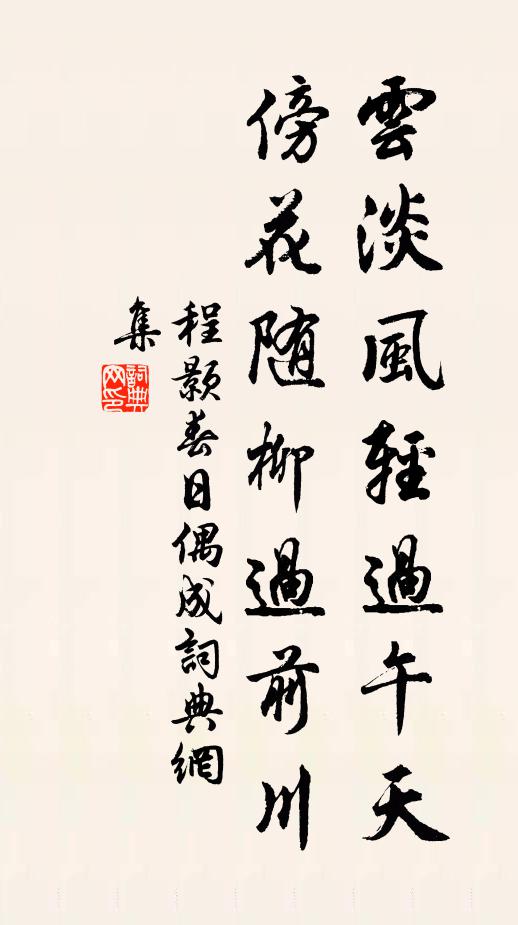 雲淡風輕過午天
傍花随柳過前川
程顥春日偶成詞典網
集
詞典
网印